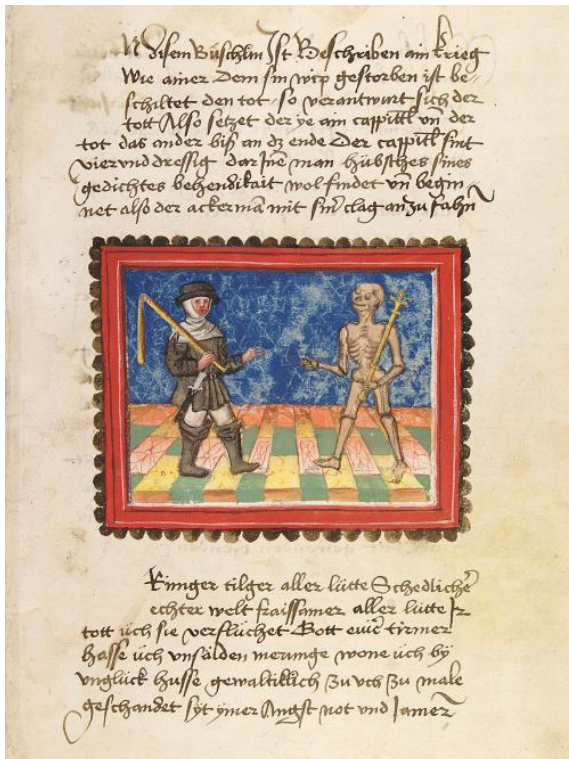 N disem Büschlin Ist Beschriben ain krieg
Wie ainer Dem sin wip gestorben ist be-
schiltet den tot so verantwurt sich der
tott Also setzet der ye ain cappittl vn̄ der
tot das ander biß an dz ende Der cappitl sint
vierunddressig dar Jnē man hübsches sines
gedichtes behendikait wol findet vn̄ begin
net also der ackermā mit sinr̄ clag an zu fahn̄
aller lütte Schedlichē
echter welt fraissamer aller lütte Jr
tott üch sie verflüchet Gott tirmer
hasse üch vnsälden merunge wone üch by
vnglück husse gewaltiklich zu vch zu male
geschandet syt ymer Angst not vnd Jamer